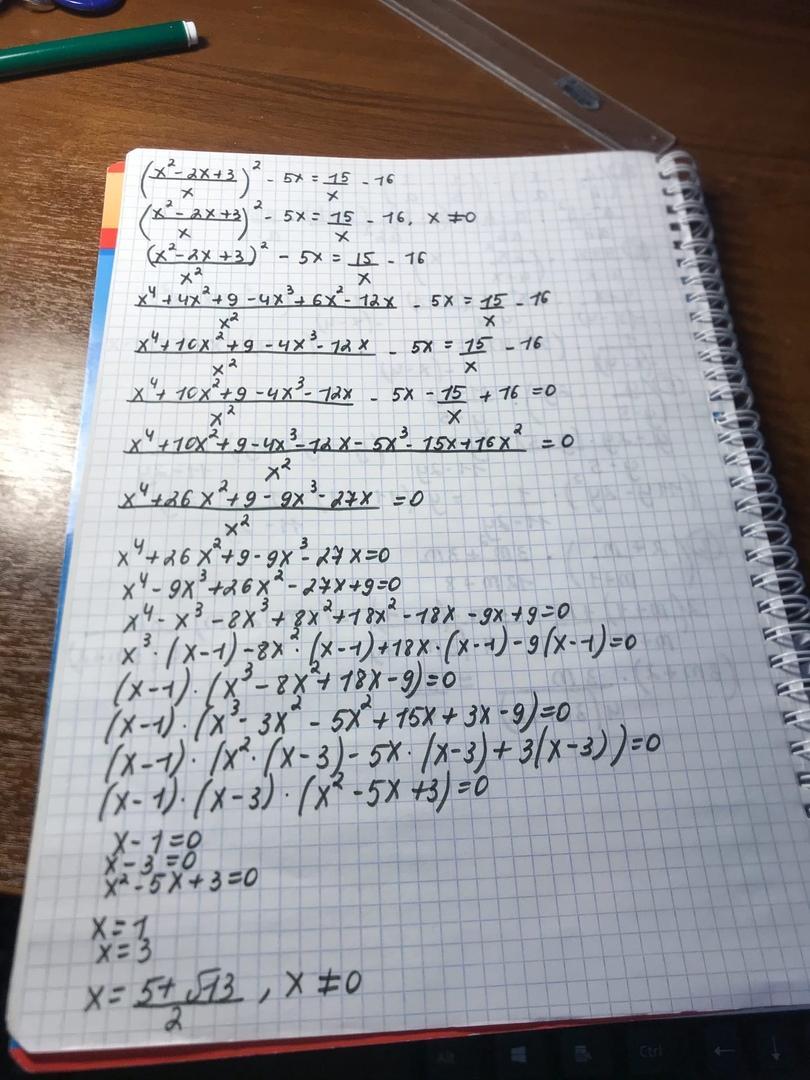 (x² - 2x + 3 / x)² - 5x = 15/x - 16
(x² - 2x + 3 / x)² - 5x = 15/x - 16, x ≠ 0
(x² - 2x + 3)² / x² - 5x = 15/x - 16
x⁴ + 4x² + 9 - 4x³ + 6x² - 12x / x² - 5x = 15/x - 16
x⁴ + 10x² + 9 - 4x³ - 12x / x² - 5x = 15/x - 16
x⁴ + 10x² + 9 - 4x³ - 12x / x² - 5x - 15/x + 16 = 0
x⁴ + 10x² + 9 - 4x³ - 12x - 5x³ - 15x + 16x² / x² = 0
x⁴ + 26x² + 9 - 9x³ - 27x / x² = 0
x⁴ + 26x² + 9 - 9x³ - 27x = 0
x⁴ - 9x³ + 26x² - 27x + 9 = 0
x⁴ - x³ - 8x³ + 8x² + 18x² - 18x - 9x + 9 = 0
x³ · (x - 1) - 8x² · (x - 1) + 18x · (x - 1) - 9(x - 1) = 0
(x - 1) · (x³ - 8x² + 18x - 9) = 0
(x - 1) · (x³ - 3x² - 5x² + 15x + 3x - 9) = 0
(x - 1) · (x² · (x - 3) - 5x · (x - 3) + 3(x - 3)) = 0
(x - 1) · (x - 3) · (x² - 5x + 3) = 0
x - 1 = 0
x - 3 = 0
x² - 5x + 3 = 0
x = 1
x = 3
x = 5 + √13 / 2, x ≠ 0
Alt Ctrl